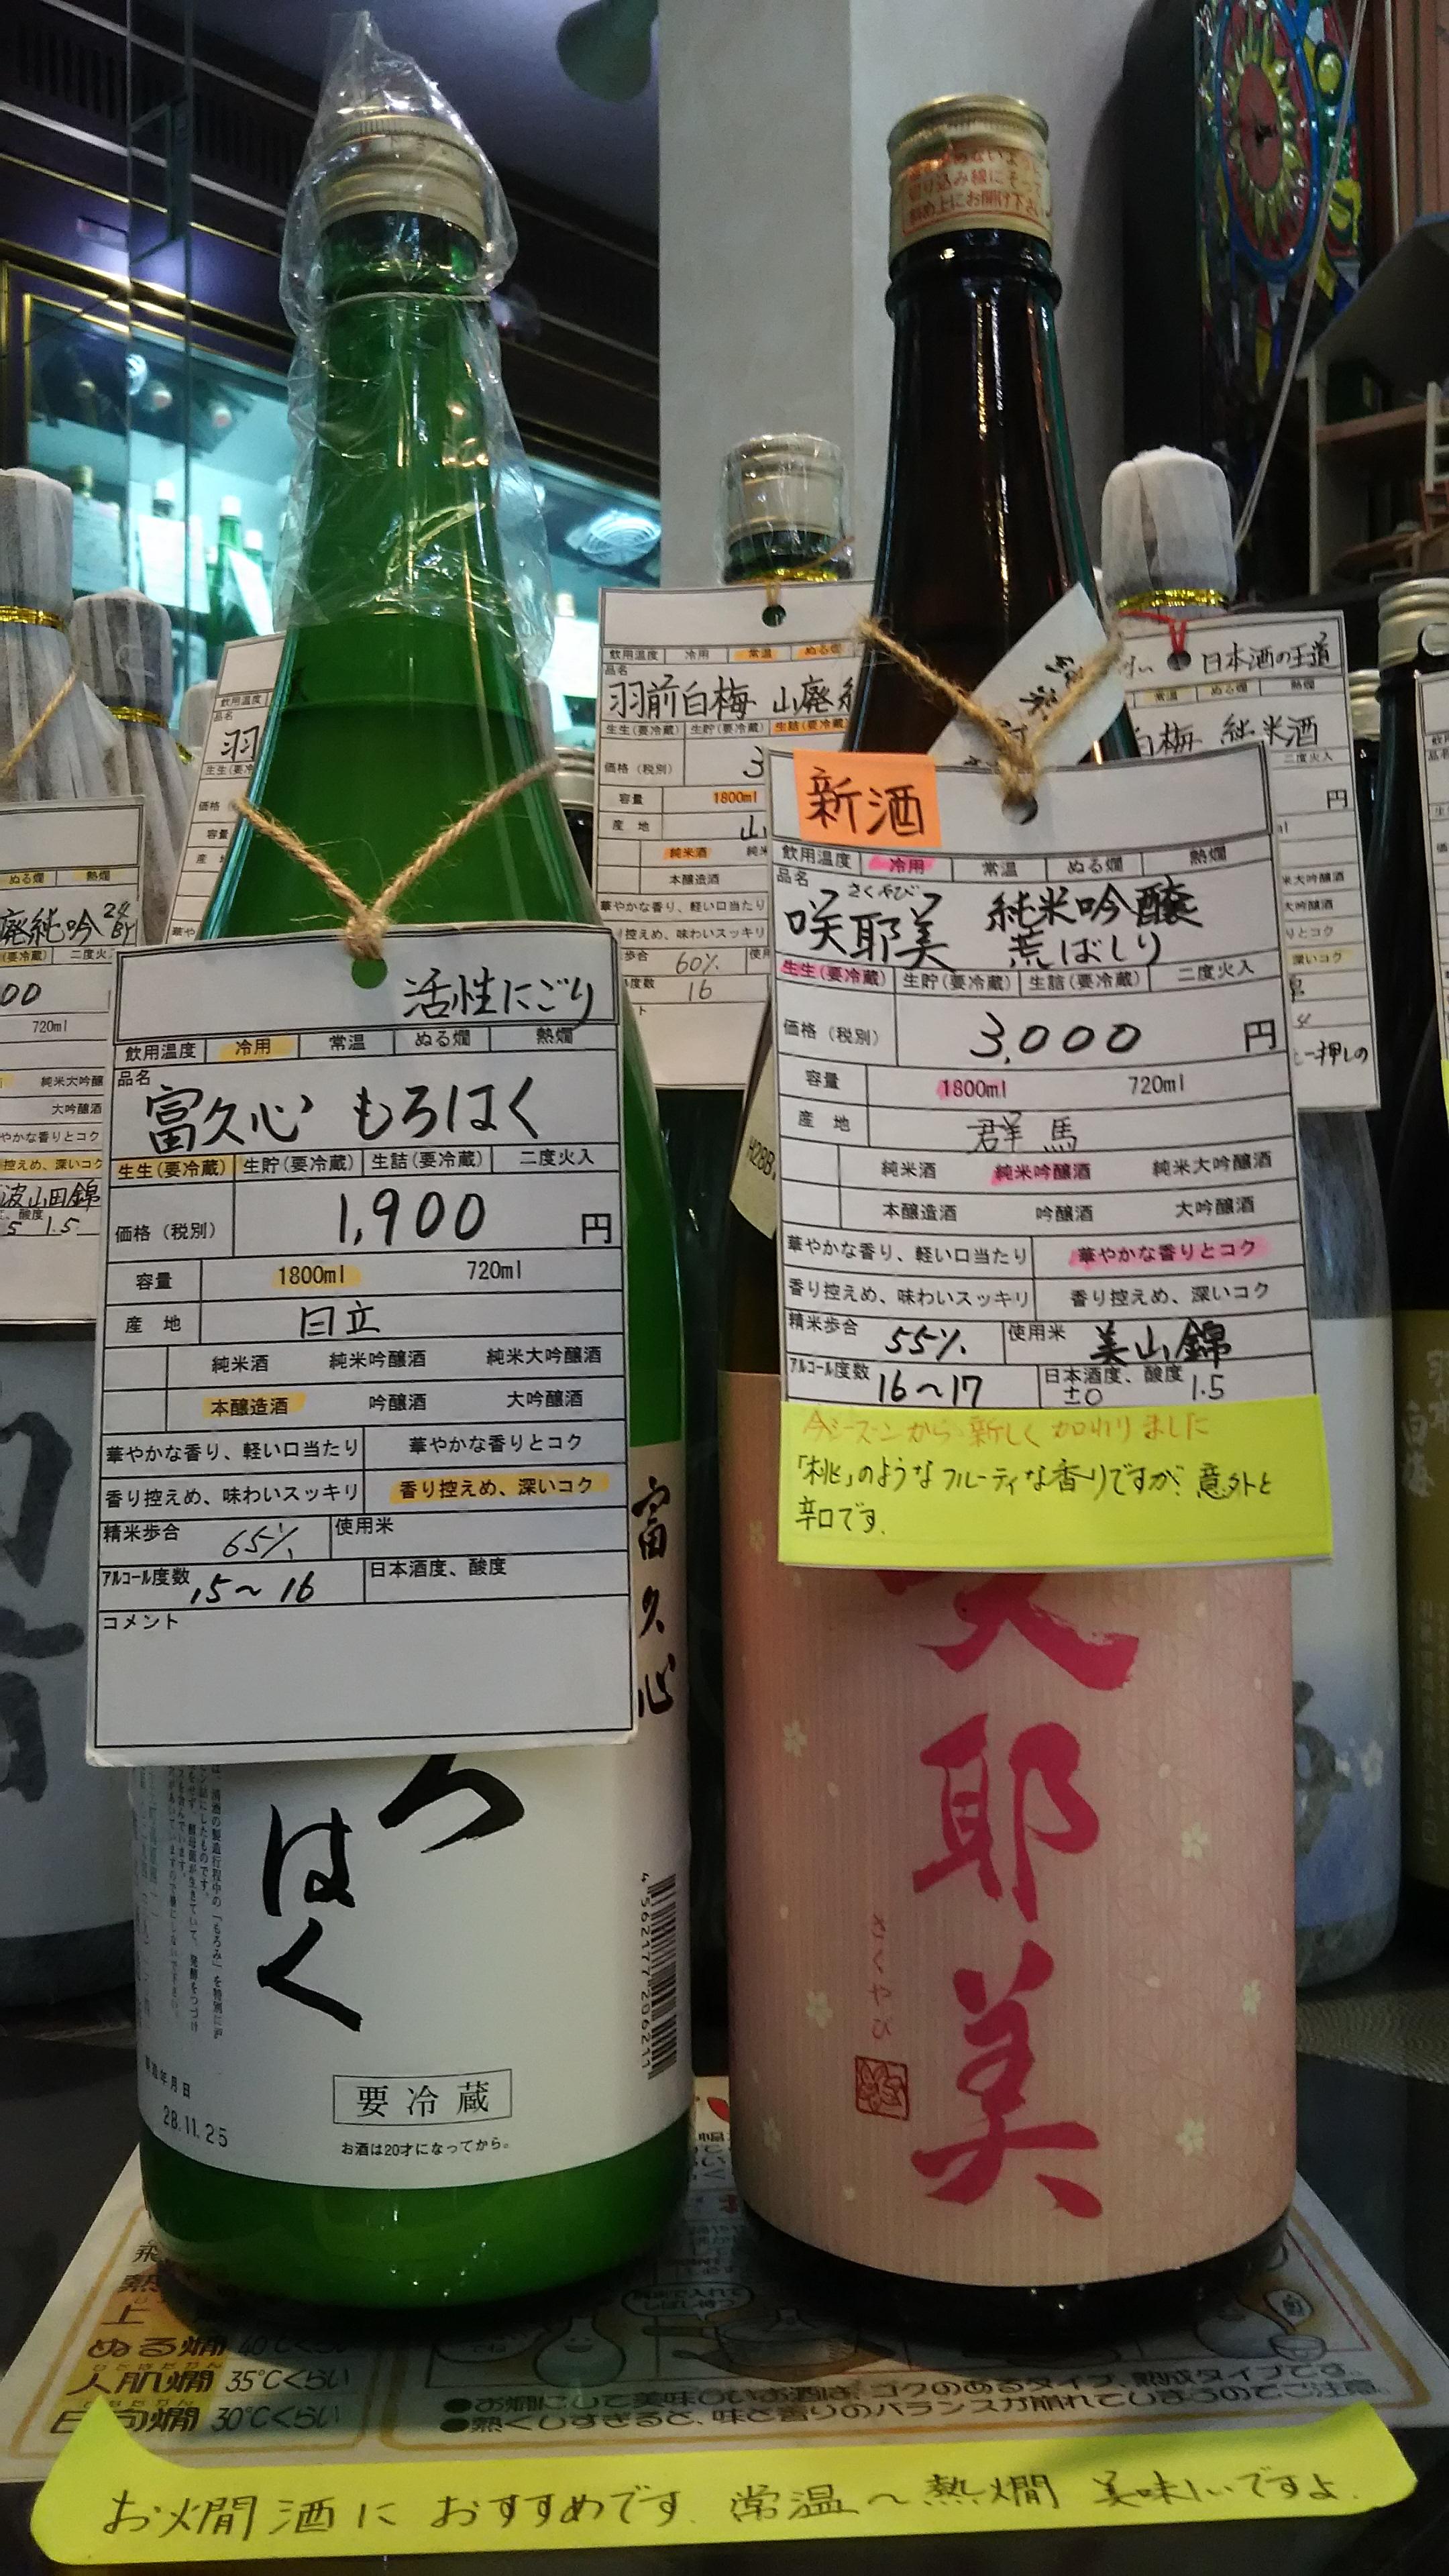 活性にごり
飲用温度 冷用 常温 ぬる燗 熱燗
品名
富久心 もろはく
生生(要冷蔵) 生貯(要冷蔵) 生詰(要冷蔵) 二度火入
価格(税別) 1,900 円
容量 1800ml 720ml
産 地 日立
純米酒 純米吟醸酒 純米大吟醸酒
本醸造酒 吟醸酒 大吟醸酒
華やかな香り、軽い口当たり 華やかな香りとコク
香り控えめ、味わいスッキリ 香り控えめ、深いコク
精米歩合 65% 使用米
アルコール度数 15〜16 日本酒度、酸度
コメント
富久心
ろはく
製造年月日
28.11.25
要冷蔵
お酒は20才になってから。
4562177296211
新酒
飲用温度 冷用 常温 ぬる燗 熱燗
品名
さくやび
咲耶美 純米吟醸
荒ばしり
生生(要冷蔵) 生貯(要冷蔵) 生詰(要冷蔵) 二度火入
価格(税別) 3,000 円
容量 1800ml 720ml
産 地 群馬
純米酒 純米吟醸酒 純米大吟醸酒
本醸造酒 吟醸酒 大吟醸酒
華やかな香り、軽い口当たり 華やかな香りとコク
香り控えめ、味わいスッキリ 香り控えめ、深いコク
精米歩合 55% 使用米 美山錦
アルコール度数 16〜17 日本酒度、酸度 ±0 1.5
今シーズンから新しく加わりました
「桃」のようなフルーティな香りですが、意外と
辛口です。
耶美
さくやび
飲用温度 冷用 常温 ぬる燗
品名
羽前白梅 山廃
生生(要冷蔵) 生貯(要冷蔵) 生詰(要冷
価格(税別) 3
容量 1800ml
産 地 山
純米酒
本醸造酒
華やかな香り、軽い口当たり
控えめ、味わいスッキリ
歩合 60%
度数 16
日本酒の王道
常温 ぬる燗 熱燗
白梅 純米酒
二度火入
円
一押しの
ぬる燗 熱燗
廃純吟
二度火
720ml
純米大吟醸
大吟醸酒
やかな香りとコク
控えめ、深いコク
山田錦
1.5
ぬる燗 40℃くらい
人肌燗 35℃くらい
日向燗 30℃くらい
●お燗にして美味しいお酒は、コクのあるタイプ、熟成タイプです。
●熱くしすぎると、味と香りのバランスが崩れてしまうのでご注意。
お燗酒に おすすめです。常温〜熱燗 美味しいですよ。